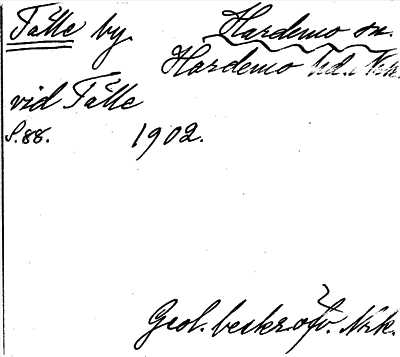 Tälle by Hardemo sn.
Hardemo hd. Nrk.
vid Tälle
S. 88. 1902.
Geol. beskr. öfv. Nrk.